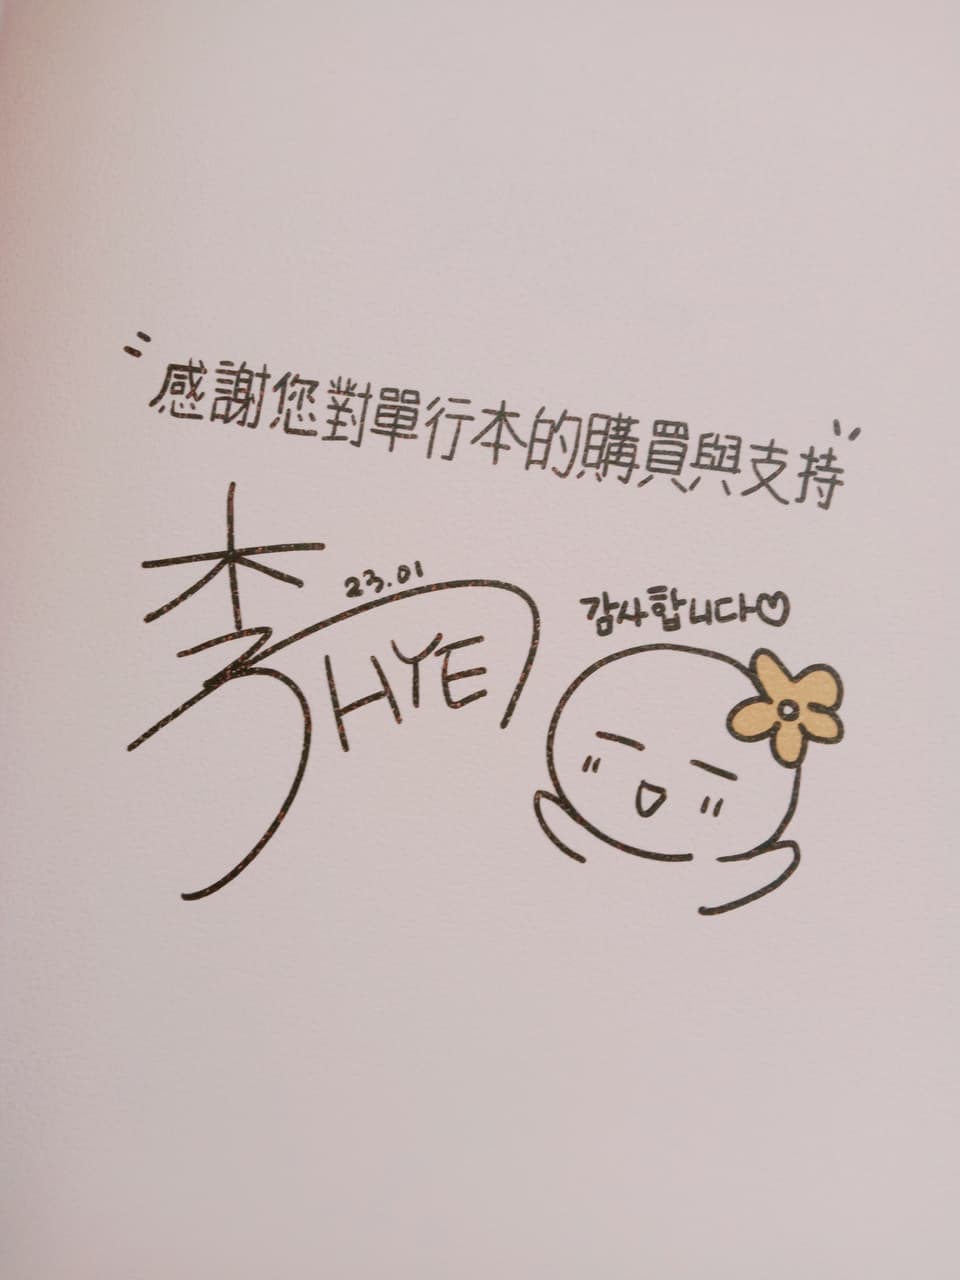 "感謝您對單行本的購買與支持"
李
23.01
HYE
감사합니다♡